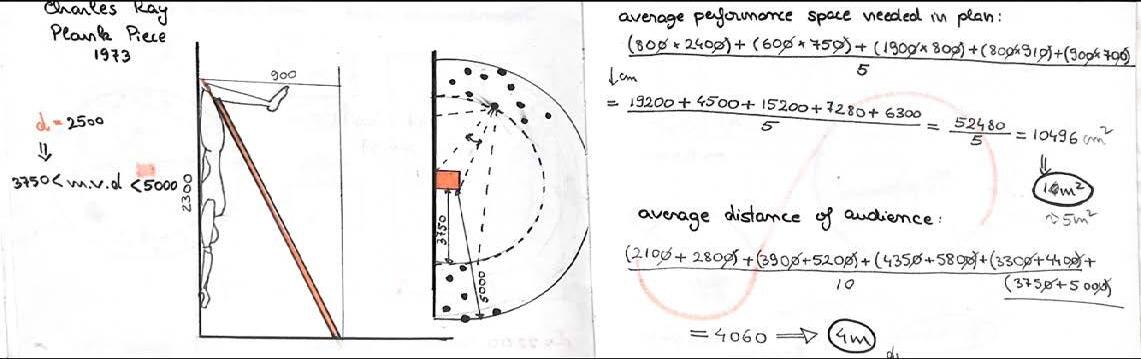 Charles Ray
Plank Piece
1973
d = 2500
⇓
3750 < m.v.d < 5000
900
2300
3750
5000
average performance space needed in plan:
(800 × 2400) + (600 × 750) + (1900 × 800) + (800×910) + (900×700)
5
↓cm
= 19200 + 4500 + 15200 + 7280 + 6300
5
= 52480
5
= 10496 cm²
⇓
m²
5m²
average distance of audience:
(2100 + 2800) + (3900 + 5200) + (4350 + 5800) + (3300 + 4400) +
(3750 + 5000)
10
= 4060 ⟹ 4m